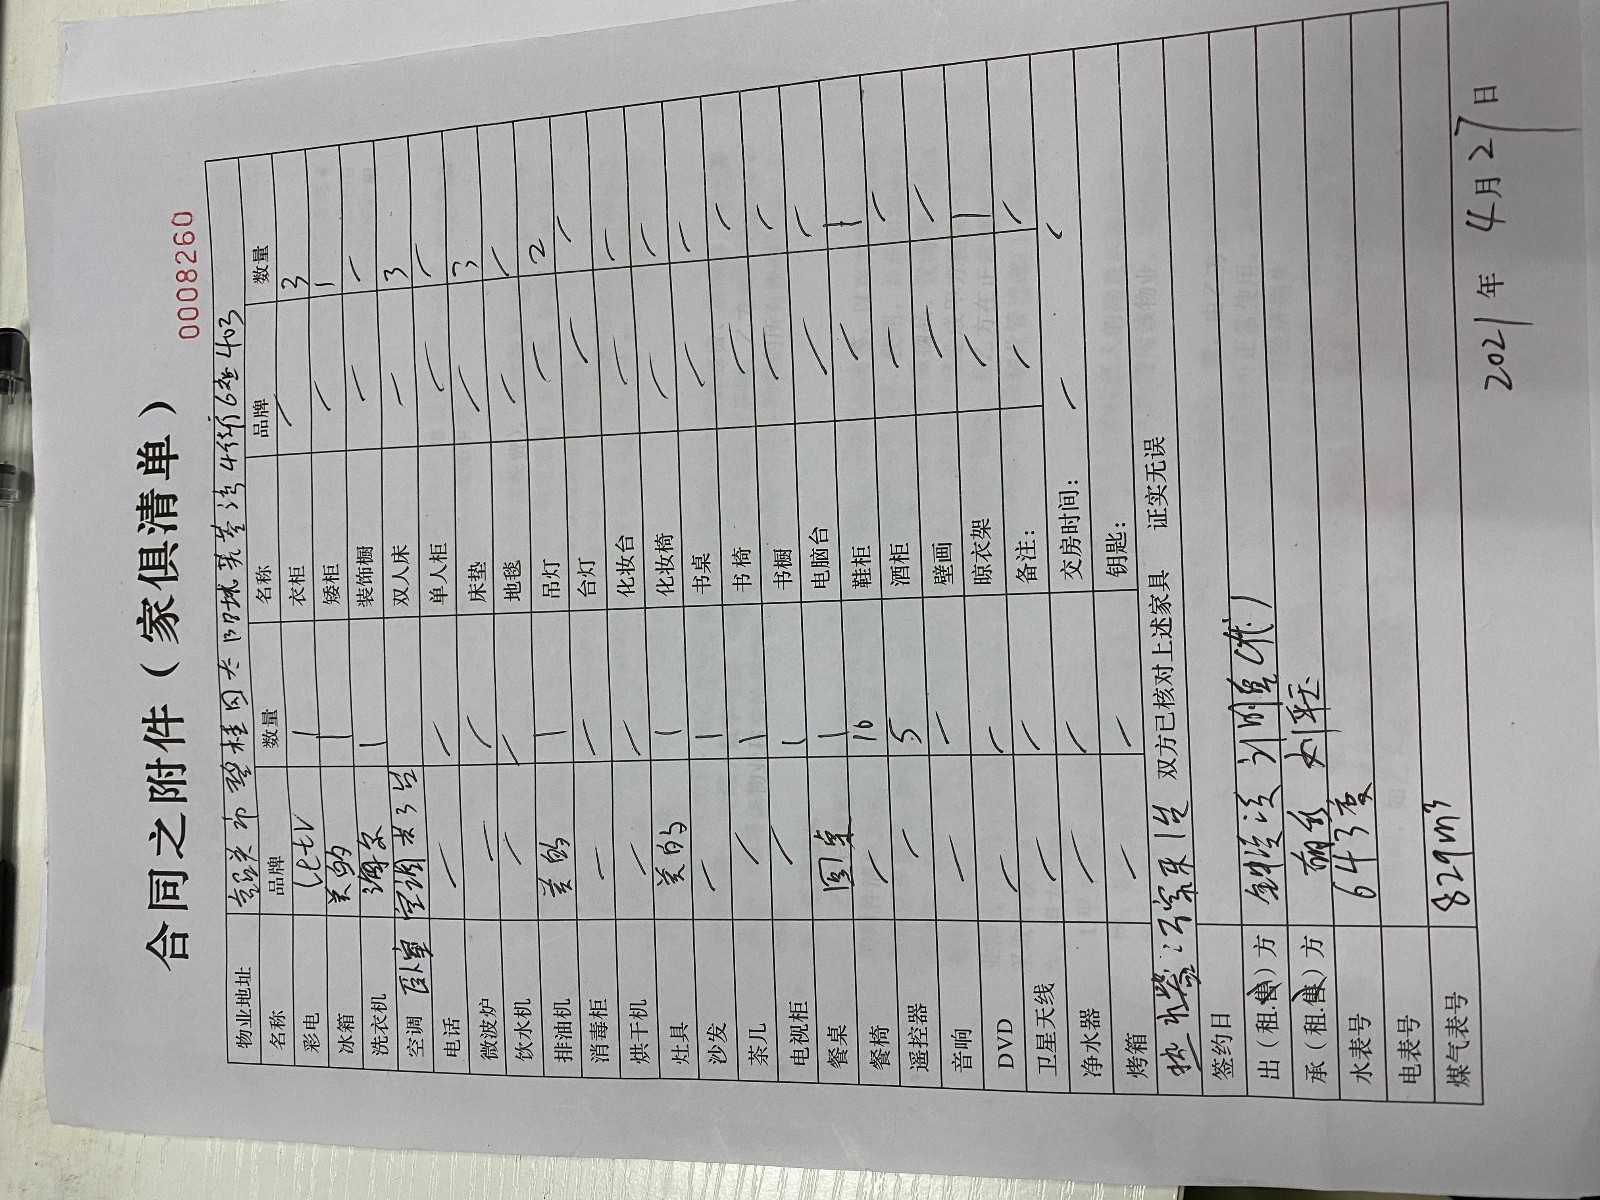 合同之附件（家俱清单）
0008260
物业地址 韶关市碧桂园太阳城芙蓉湾4街6座403
名称 品牌 数量 名称 品牌 数量
彩电 Letv 1 衣柜 / 3
冰箱 美的 1 矮柜 / 1
洗衣机 海尔 1 装饰橱 / /
空调 卧室空调共3台 双人床 / 3
电话 / / 单人柜 / /
微波炉 / / 床垫 / 3
饮水机 / / 地毯 / /
排油机 美的 1 吊灯 / 2
消毒柜 / / 台灯 / /
烘干机 / / 化妆台 / /
灶具 美的 1 化妆椅 / /
沙发 / 1 书桌 / /
茶几 / 1 书椅 / /
电视柜 / 1 书橱 / /
餐桌 圆桌 1 电脑台 / /
餐椅 / 10 鞋柜 / 1
遥控器 / 5 酒柜 / /
音响 / / 壁画 / /
DVD / / 晾衣架 / 1
卫星天线 / / 备注： / /
净水器 / / 交房时间： / /
烤箱 / / 钥匙：
双方已核对上述家具 证实无误
签约日
出（租.售）方 刘明(代)
承（租.售）方
水表号 643度
电表号
煤气表号 829m³
2021年 4月27日